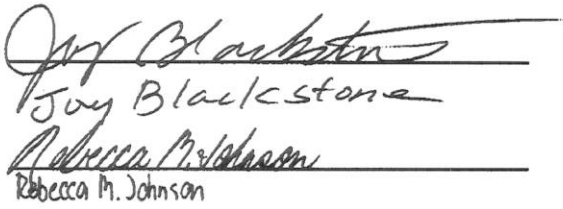 Joy Blackstone
Joy Blackstone
Rebecca M. Johnson
Rebecca M. Johnson